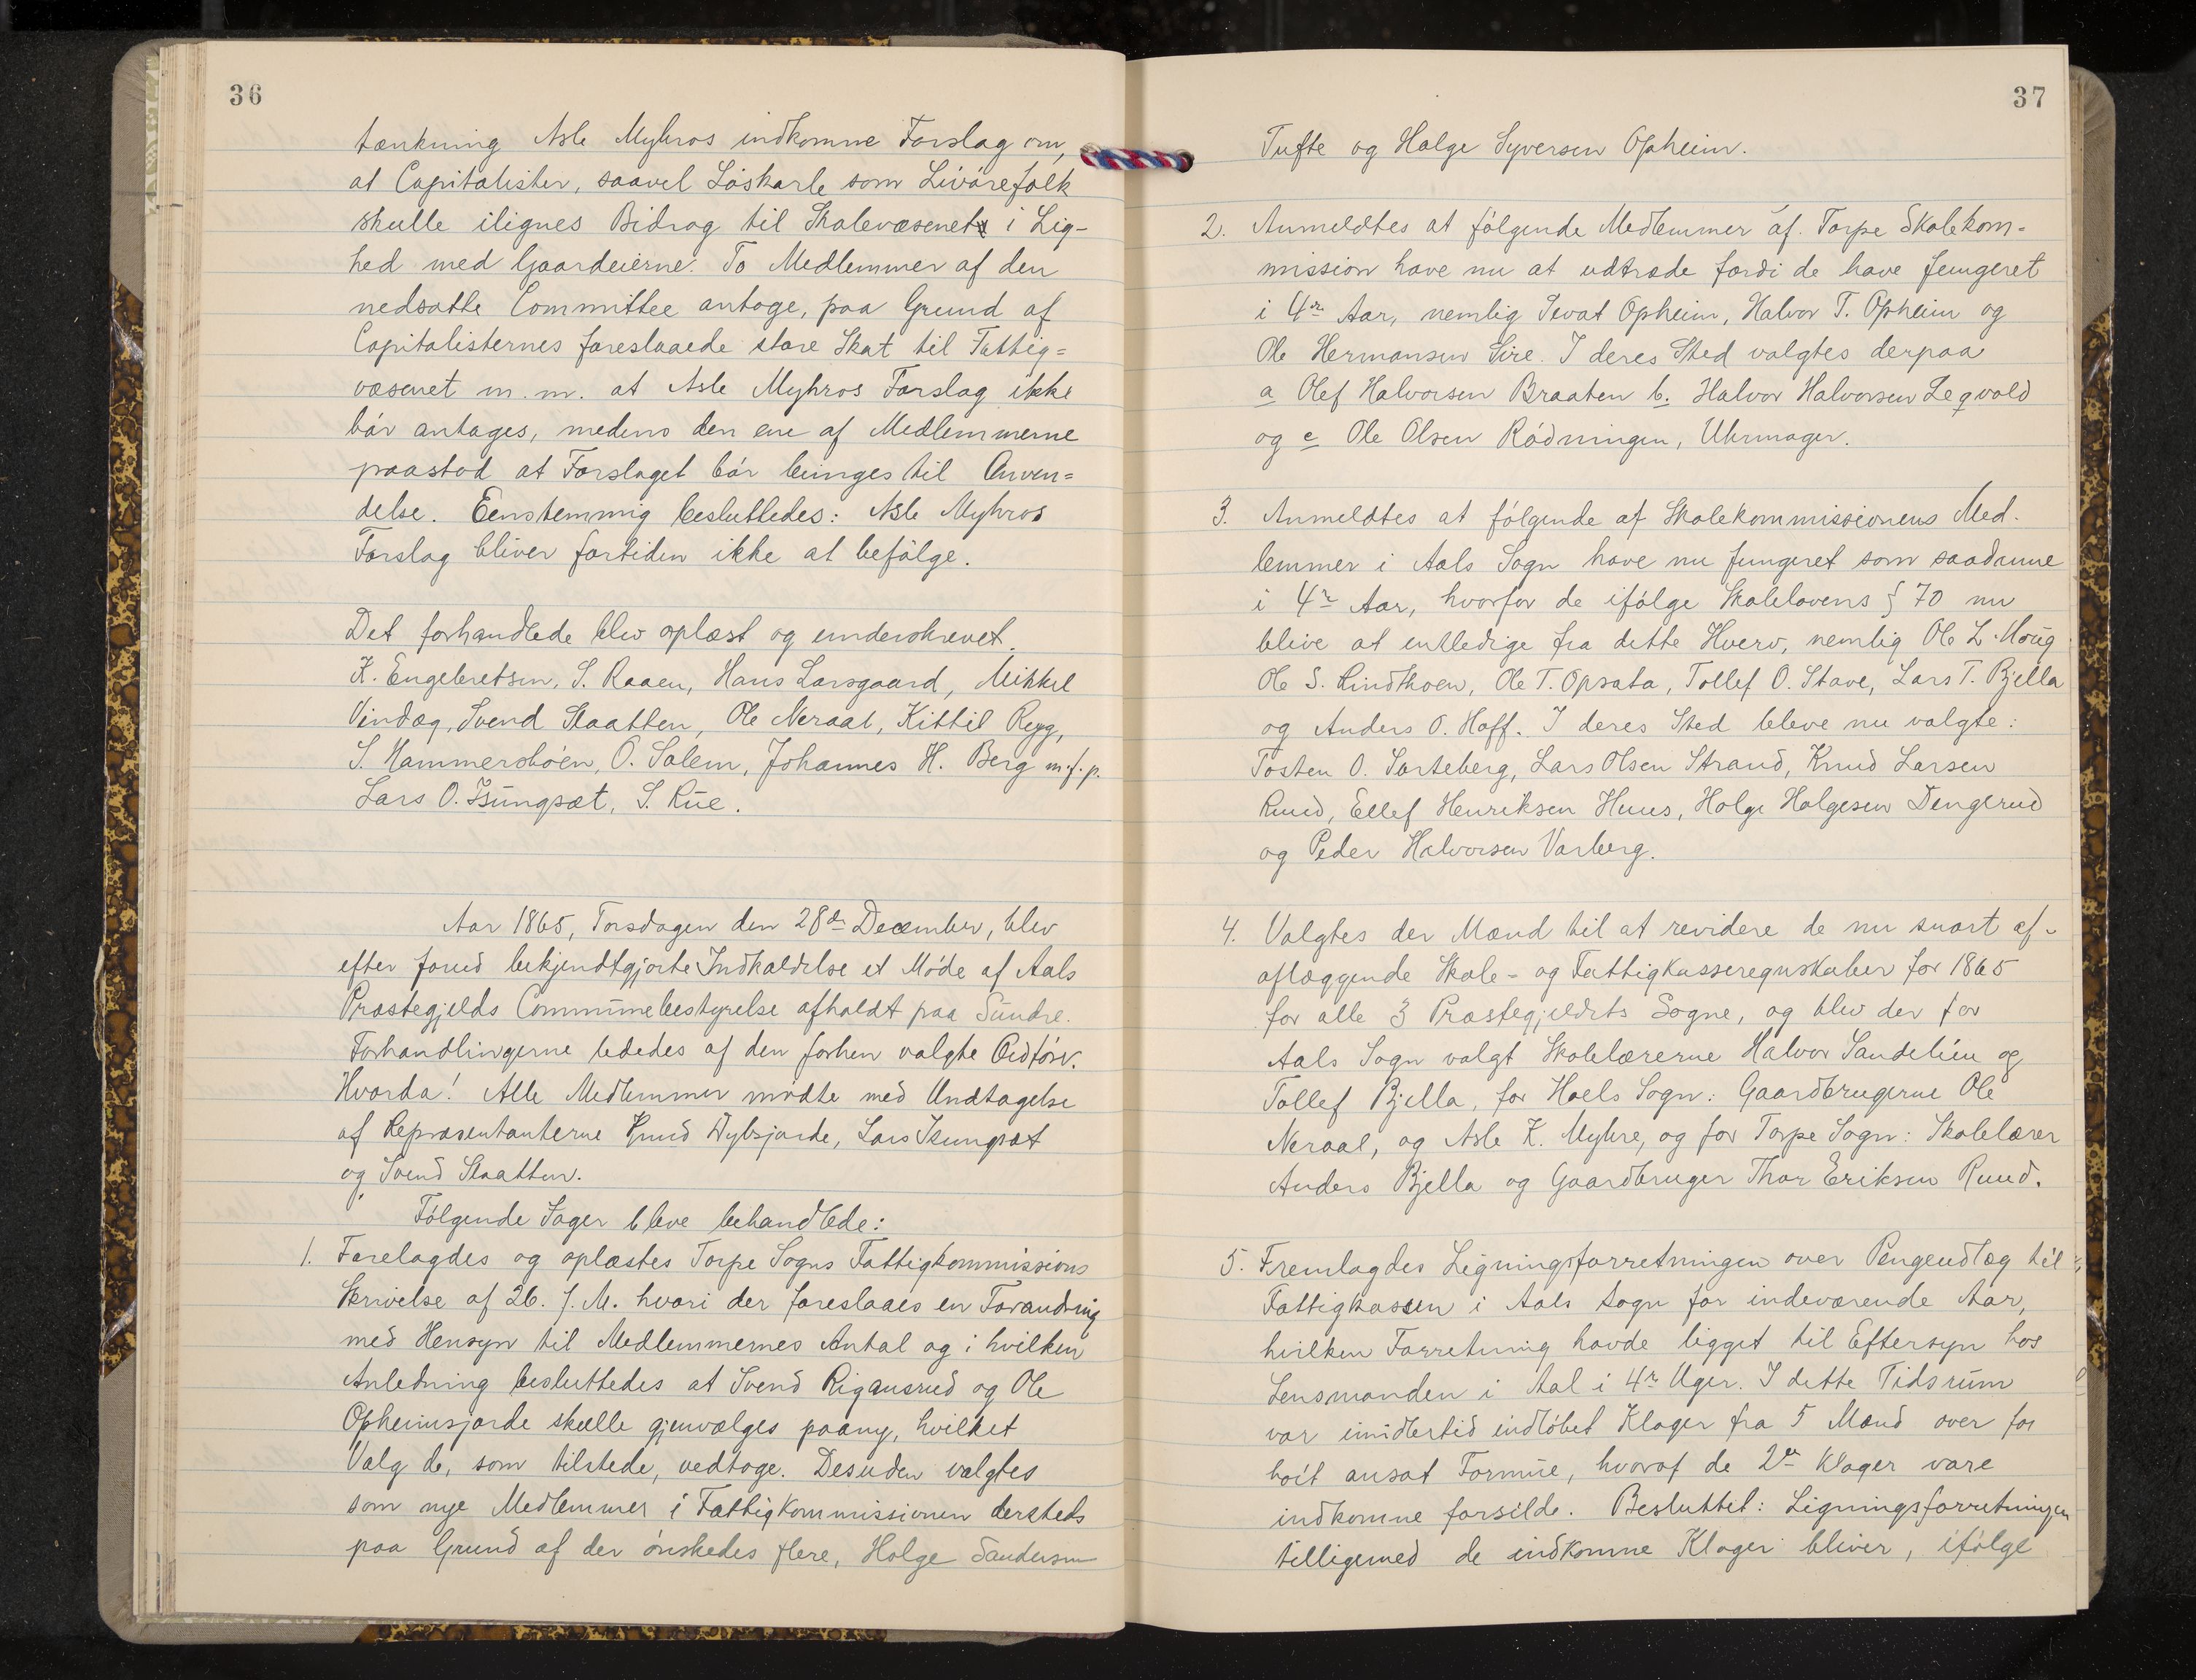 36
tænkning Asle Myhros indkomne Forslag om,
at Capitalister, saavel Löskarle som Livörefolk
skulle ilignes Bidrag til Skolevæsenet i Lig-
hed med Gaardeierne. To Medlemmer af den
nedsatte Committee antoge, paa Grund af
Capitalisternes foreslaaede store Skat til Fattig=
væsenet m.m. at Asle Myhros Forslag ikke
bör antages, medens den ene af Medlemmerne
paastod at Forslaget bör bringes til Anven=
delse. Eenstemmig besluttedes: Asle Myhros
Forslag bliver fortiden ikke at befölge.
Det forhandlede blev oplæst og underskrevet.
K. Engebretsen, S. Raaen, Hans Larsgaard, Mikkel
Vindeg, Svend Staatten, Ole Neraal, Kittil Rygg,
S. Hammersböen, O. Salem, Johannes H. Berg m.f.p.
Lars O. Isüngsæt, S. Rüe.
Aar 1865, Torsdagen den 28de December, blev
efter forud bekjendtgjorte Indkaldelse et Möde af Aals
Præstegjelds Commünebestyrelse afholdt paa Sündre.
Forhandlingerne lededes af den forhen valgte Ordförer.
Hvorda! Alle Medlemmer mödte med Undtagelse
af Repræsentanterne Knud Dybsjorde, Lars Isungsæt
og Svend Staatten.
Fölgende Sager bleve behandlede:
1. Forelagdes og oplæstes Torpe Sogns Fattigkommissions
Skrivelse af 26. f. M. hvori der foreslaaes en Forandring
med Hensyn til Medlemmernes Antal og i hvilken
Anledning besluttedes at Svend Rigansrud og Ole
Opheimsjorde skulle gjenvælges paany, hvilket
Valg de, som tilstede, vedtoge. Desuden valgtes
som nye Medlemmer i Fattigkommissionen dersteds
paa Grund af der önskedes flere, Holge Sandersen
37
Tufte og Holge Syversen Opheim.
2. Anmeldtes at fölgende Medlemmer af Torpe Skolekom=
mission have nu at udtræde fordi de have fungeret
i 4re Aar, nemlig Sevat Opheim, Halvor T. Opheim og
Ole Hermansen Sire. I deres Sted valgtes derpaa
a Olef Halvorsen Braaten b. Halvor Halvorsen Leqvold
og c Ole Olsen Rödningen, Uhrmager.
3. Anmeldtes at fölgende af Skolekommissionens Med-
lemmer i Aals Sogn have nu fungeret som saadanne
i 4re Aar, hvorfor de ifölge Skolelovens § 70 nu
blive at entledige fra dette Hverv, nemlig Ole L. Moüg
Ole S. Lindthoen, Ole T. Opsata, Tollef O. Stave, Lars T. Bjella
og Anders O. Hoff. I deres Sted bleve nu valgte:
Tosten O. Sorteberg, Lars Olsen Strand, Knud Larsen
Ruud, Ellef Henriksen Huus, Holge Holgesen Dengerud
og Peder Halvorsen Varberg.
4. Valgtes der Mænd til at revidere de nu snart af-
aflæggende Skole- og Fattigkasseregnskaber for 1865
for alle 3 Præstegjeldets Sogne, og blev der for
Aals Sogn valgt Skolelærerne Halvor Sandelien og
Tollef Bjella, for Hoels Sogn: Gaardbrugerne Ole
Neraal, og Asle K. Myhre, og for Torpe Sogn: Skolelærer
Anders Bjella og Gaardbruger Thor Eriksen Ruud.
5. Fremlagdes Ligningsforretningen over Pengeudlæg til
Fattigkassen i Aals Sogn for indeværende Aar,
hvilken Forretning havde ligget til Eftersyn hos
Lensmanden i Aal i 4re Uger. I dette Tidsrüm
var imidlertid indlöbet Klager fra 5 Mænd over for
höit ansat Formüe, hvoraf de 2de Klager vare
indkomne forsilde. Besluttet: Ligningsforretningen
tilligemed de indkomne Klager bliver, ifölge